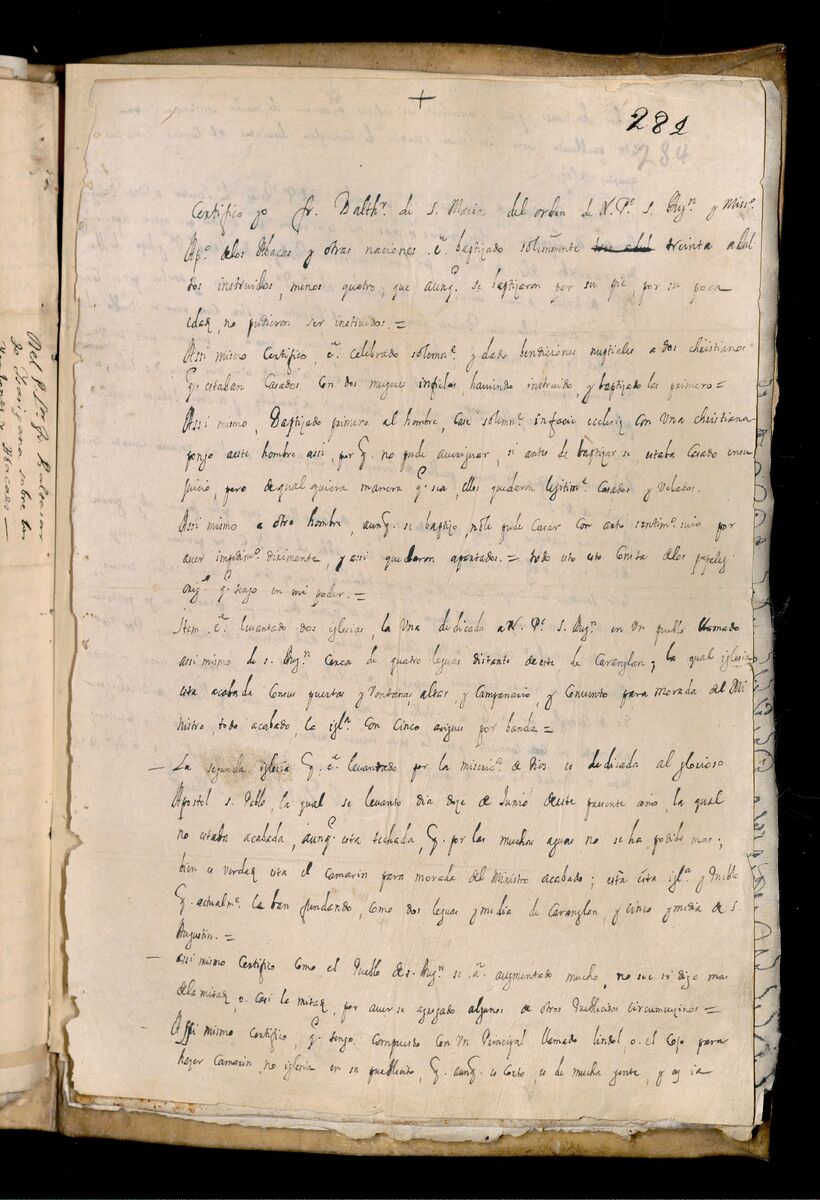 +
282
284
Certifico yo fr. Balthr. de S. Maria del orden de N. Pe. S. Augn. y Misso.
Apo. delos Abacas y otras naciones è baptizado solemnmente tres adul treinta adul
tos instruidos, menos quatro, que aunq. se baptizaron por su pie, por su poca
edad, no pudieron ser instruidos. =
Assi mismo Certifico, è celebrado solemne. y dado bendiciones nuptiales a dos christianos
q. estaban Casados Con dos mugeres infieles, haviendo instruido, y baptizado las primero =
Assi mismo, Baptizado primero al hombre, Casè solemne. in facie ecclesiæ con Una christiana
pongo aeste hombre assi, por q. no pude averiguar, si antes de baptizar se, estaba Casado ensu
juicio, pero de qual quiera manera q. sea, ellos quedaron lejitime. Casados y Velados.
Assi mismo a otro hombre, aunq. se baptizo, no le pude Casar Con por
aver impedimo. dirimente, y assi quedaron apartados. = todo esto esto Consta delos papeles
q. tengo en mi poder. =
Item è levantado dos iglesias, la Una dedicada a N. Pe. S. Augn. en Un pueblo llamado
assi mismo de S. Augn. Cerca de quatro leguas distante de este de Caranglan; la qual iglesia
esta acabada Consus puertas y Ventanas, altar, y Campanario, y Convento para morada del Mi
nistro todo acabado, la igla. Con Cinco arigues por banda =
— La segunda iglesia q. è levantado por la miseric. de Dios es dedicada al glorioso
Apostol S. Pablo, la qual se levanto dia doze de Junio deste presente año, la qual
no estaba acabada, aunq. esta techada, q. por las muchas aguas no se ha podido mas;
bien es verdad esta el Camarin para morada del Ministro acabado; està esta igla. y Pueblo
q. actualme. la ban fundando, Como dos leguas y media de Caranglan, y cinco y media de S.
Augustin. =
— Assi mismo Certifico Como el Pueblo de S. Augn. se à augmentado mucho, no se si diga mas
dela mitad, o. Casi la mitad, por aver se agregado algunos de otros Pueblecitos circumvezinos =
- Assi mismo Certifico, q. tengo Compuesto Con Un Principal llamado lindol o. el Cojo para
hazer Camarin, no iglesia en su pueblecito, q. aunq. es Corto, es de mucha gente, y ay ia
Del P. Fr. Balthasar
de Ysasigana sobre los
Abacaes —